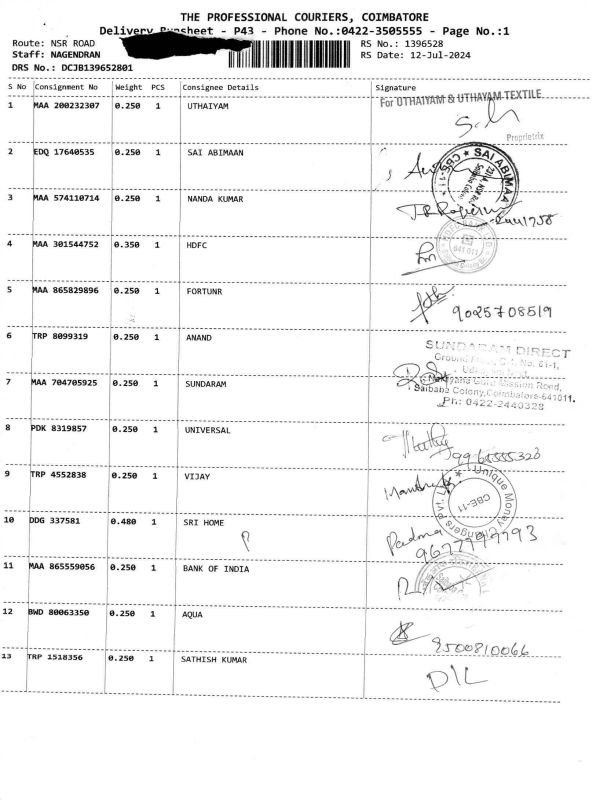 THE PROFESSIONAL COURIERS, COIMBATORE
Delivery Runsheet - P43 - Phone No.:0422-3505555 - Page No.:1
Route: NSR ROAD RS No.: 1396528
Staff: NAGENDRAN RS Date: 12-Jul-2024
DRS No.: DCJB139652801
S No Consignment No Weight PCS Consignee Details Signature
1 MAA 200232307 0.250 1 UTHAIYAM For UTHAIYAM & UTHAYAM TEXTILE
Proprietrix
2 EDQ 17640535 0.250 1 SAI ABIMAAN SAI ABIMAA
3 MAA 574110714 0.250 1 NANDA KUMAR
4 MAA 301544752 0.350 1 HDFC
641 011
5 MAA 865829896 0.250 1 FORTUNR
9025708519
6 TRP 8099319 0.250 1 ANAND
SUNDARAM DIRECT
7 MAA 704705925 0.250 1 SUNDARAM
Mission Road,
Saibaba Colony, Coimbatore-641011.
Ph: 0422-2440328
8 PDK 8319857 0.250 1 UNIVERSAL
9 TRP 4552838 0.250 1 VIJAY
Unique Money Changers Pvt. Ltd
CBE-11
10 DDG 337581 0.480 1 SRI HOME Padma
11 MAA 865559056 0.250 1 BANK OF INDIA
12 BWD 80063350 0.250 1 AQUA
9500810066
13 TRP 1518356 0.250 1 SATHISH KUMAR
D/L